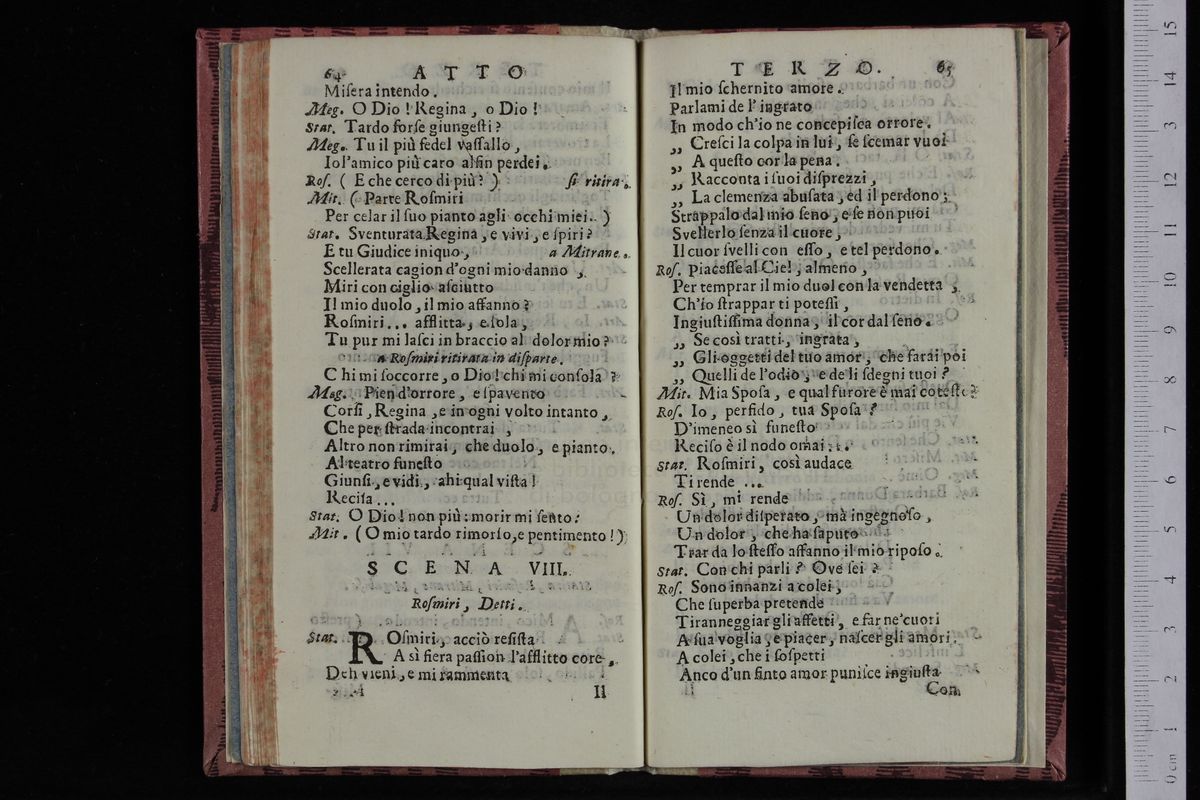 64 ATTO
Miſera intendo.
Meg. O Dio! Regina, o Dio!
Stat. Tardo forſe giungeſti?
Meg. Tu il più fedel vaſſallo,
Iol'amico più caro alfin perdei.
Roſ. ( E che cerco di più? ) ſi ritira.
Mit. ( Parte Roſmiri
Per celar il ſuo pianto agli occhi miei. )
Stat. Sventurata Regina, e vivi, e ſpiri?
E tu Giudice iniquo, a Mitrane.
Scellerata cagion d'ogni mio danno,
Miri con ciglio aſciutto
Il mio duolo, il mio affanno?
Roſmiri... afflitta, e ſola,
Tu pur mi laſci in braccio al dolor mio?
a Roſmiri ritirata in diſparte.
Chi mi ſoccorre, o Dio! chi mi conſola?
Meg. Pien d'orrore, e ſpavento
Corſi, Regina, e in ogni volto intanto,
Che per ſtrada incontrai,
Altro non rimirai, che duolo, e pianto.
Al teatro funeſto
Giunſi, e vidi, ahi qual viſta!
Reciſa...
Stat. O Dio! non più: morir mi ſento:
Mit. ( O mio tardo rimorſo, e pentimento! )
SCENA VIII.
Roſmiri, Detti.
Stat. ROſmiri, acciò reſiſta
A sì fiera paſſion l'afflitto core,
Deh vieni, e mi rammenta
Il
TERZO. 65
Il mio ſchernito amore.
Parlami de l'ingrato
In modo ch'io ne concepiſca orrore.
,, Creſci la colpa in lui, ſe ſcemar vuoi
,, A queſto cor la pena.
,, Racconta i ſuoi diſprezzi,
,, La clemenza abuſata, ed il perdono;
Strappalo dal mio ſeno, e ſe non puoi
Svellerlo ſenza il cuore,
Il cuor ſvelli con eſſo, e tel perdono.
Roſ. Piaceſſe al Ciel, almeno,
Per temprar il mio duol con la vendetta,
Ch'io ſtrappar ti poteſſi,
Ingiuſtiſſima donna, il cor dal ſeno.
,, Se così tratti, ingrata,
,, Gli oggetti del tuo amor, che farai poi
,, Quelli de l'odio, e de li ſdegni tuoi?
Mit. Mia Spoſa, e qual furore è mai coteſto?
Roſ. Io, perfido, tua Spoſa?
D'imeneo sì funeſto
Reciſo è il nodo omai...
Stat. Roſmiri, così audace
Ti rende ...
Roſ. Sì, mi rende
Un dolor diſperato, mà ingegnoſo,
Un dolor, che ha ſaputo
Trar da lo ſteſſo affanno il mio ripoſo.
Stat. Con chi parli? Ove ſei?
Roſ. Sono innanzi a colei,
Che ſuperba pretende
Tiranneggiar gli affetti, e far ne' cuori
A ſua voglia, e piacer, naſcer gli amori.
A colei, che i ſoſpetti
Anco d'un finto amor puniſce ingiuſta
Con